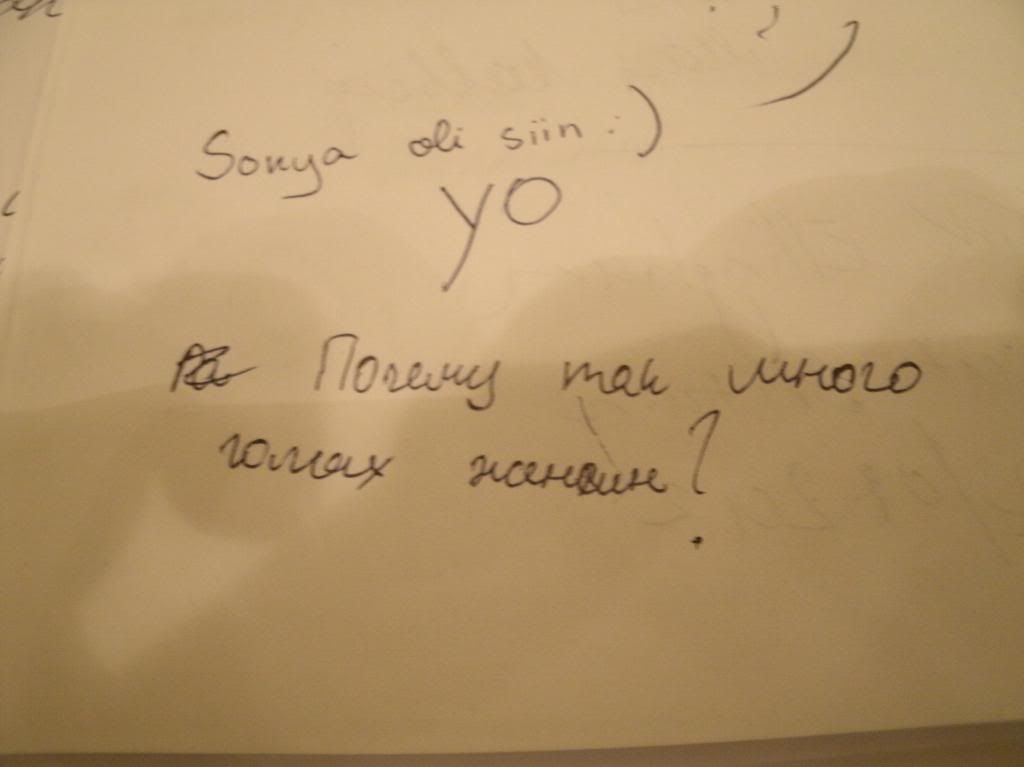 Sonya oli siin :)
YO
Почему так много
голых женщин?